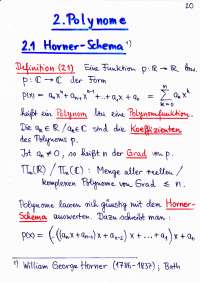 20
2. Polynome
2.1 Horner-Schema ¹⁾
Definition (2.1) Eine Funktion p: ℝ → ℝ bzw.
p: ℂ → ℂ der Form
p(x) = aₙxⁿ + aₙ₋₁xⁿ⁻¹ + ... + a₁x + a₀ = ∑ₖ₌₀ⁿ aₖxᵏ
heißt ein Polynom bzw. eine Polynomfunktion.
Die aₖ ∈ ℝ / aₖ ∈ ℂ sind die Koeffizienten
des Polynoms p.
Ist aₙ ≠ 0, so heißt n der Grad von p.
Πₙ(ℝ) / Πₙ(ℂ) : Menge aller reellen /
komplexen Polynome vom Grad ≤ n.
Polynome lassen sich günstig mit dem Horner-
Schema auswerten. Dazu schreibt man:
p(x) = (...((aₙx + aₙ₋₁)x + aₙ₋₂)x + ... + a₁)x + a₀
1) William George Horner (1786-1837); Bath